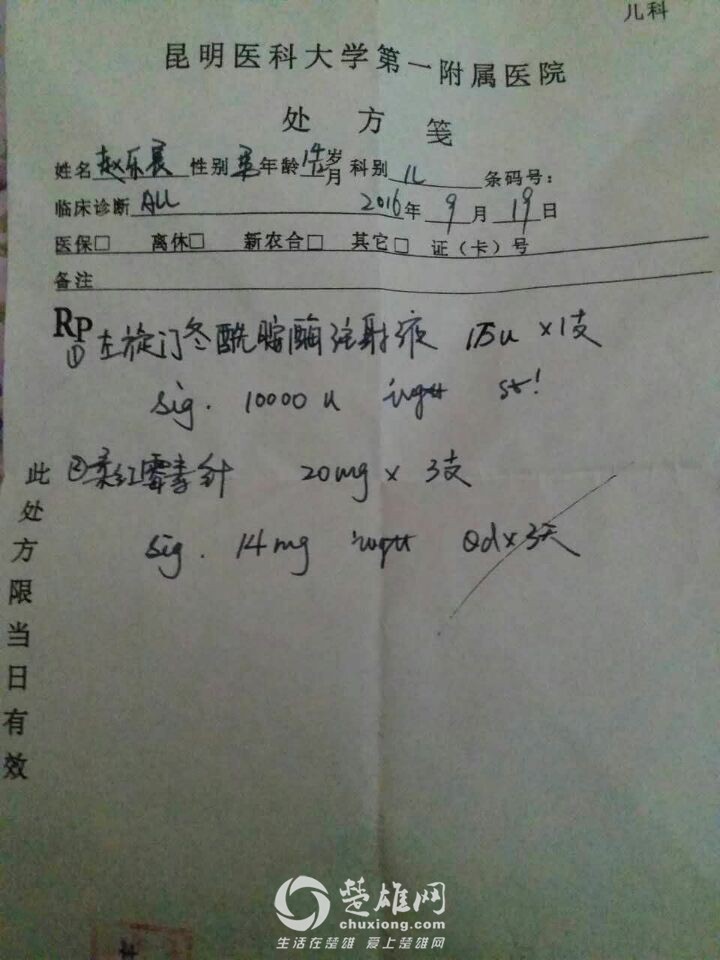 儿科
昆明医科大学第一附属医院
处方笺
姓名 赵乐晨 性别 男 年龄 岁月 科别 儿 条码号:
临床诊断 ALL 2016年 9月 19日
医保□ 离休□ 新农合□ 其它□ 证(卡)号
备注
Rp
① 左旋门冬酰胺酶注射液 1万u ×1支
sig. 10000u ivgtt st!
② 柔红霉素针 20mg × 3支
sig. 14mg ivgtt Qd×3天
此处方限当日有效
楚雄网
chuxiong.com
生活在楚雄 爱上楚雄网